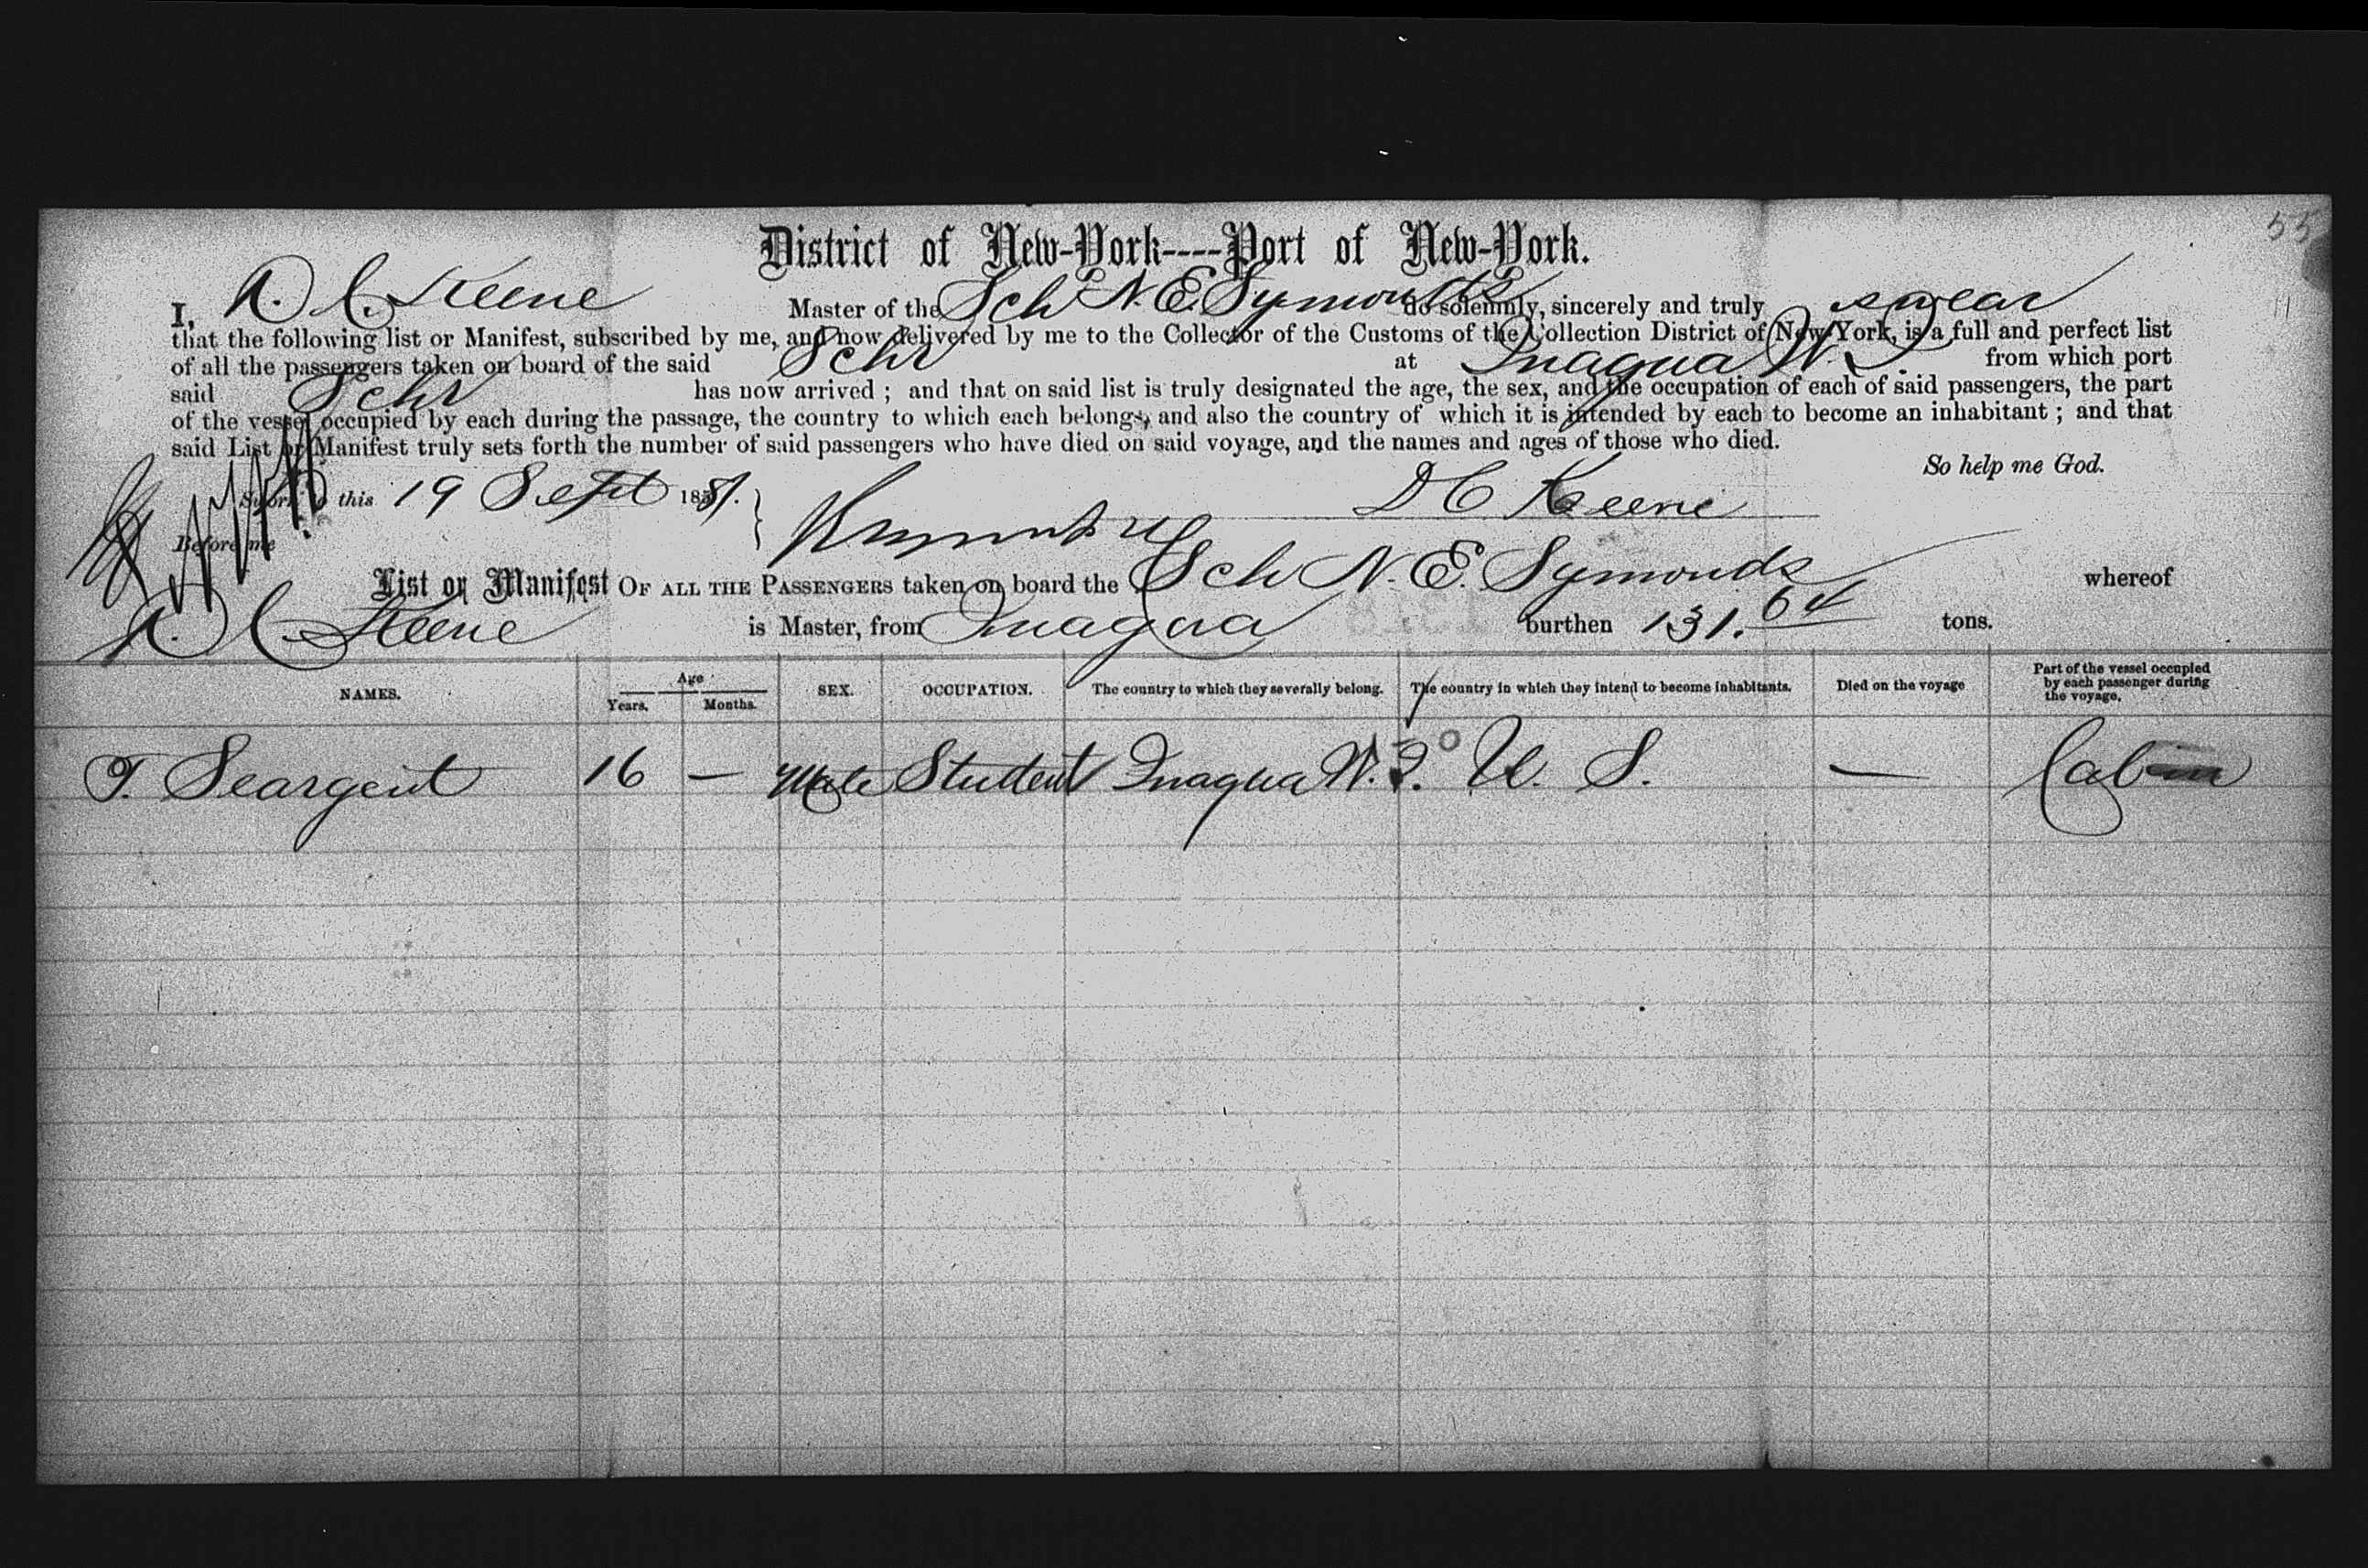 55
District of New-York----Port of New-York.
I, D. C. Keene Master of the Schr N. E. Symonds do solemnly, sincerely and truly swear
that the following list or Manifest, subscribed by me, and now delivered by me to the Collector of the Customs of the Collection District of New York, is a full and perfect list
of all the passengers taken on board of the said Schr at Inagua W. I. from which port
said Schr has now arrived ; and that on said list is truly designated the age, the sex, and the occupation of each of said passengers, the part
of the vessel occupied by each during the passage, the country to which each belongs, and also the country of which it is intended by each to become an inhabitant ; and that
said List or Manifest truly sets forth the number of said passengers who have died on said voyage, and the names and ages of those who died.
So help me God.
Sworn this 19 Sept 1881. D C Keene
Before me
List or Manifest OF ALL THE PASSENGERS taken on board the Sch N. E. Symonds whereof
D. C. Keene is Master, from Inagua burthen 131.64 tons.
NAMES. Age Years. Months. SEX. OCCUPATION. The country to which they severally belong. The country in which they intend to become inhabitants. Died on the voyage Part of the vessel occupied by each passenger during the voyage.
T. Seargent 16 — Male Student Inagua W. I. U. S. — Cabin